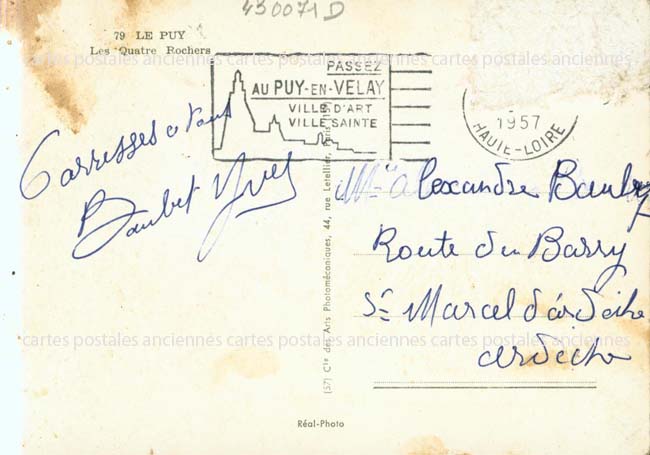 430071D
79 LE PUY
Les Quatre Rochers
PASSEZ
AU PUY-EN-VELAY
VILLE D'ART
VILLE SAINTE
1957
HAUTE-LOIRE
Carresses a tous
Baubet Yves
Alexandre
Route du Barry
St Marcel d'ardèche
ardèche
(57) Cie des Arts Photomécaniques, 44, rue Letellier, Paris
Réal-Photo
cartes postales anciennes cartes postales anciennes cartes postales anciennes
cartes postales anciennes cartes postales anciennes cartes postales anciennes
cartes postales anciennes cartes postales anciennes cartes postales anciennes